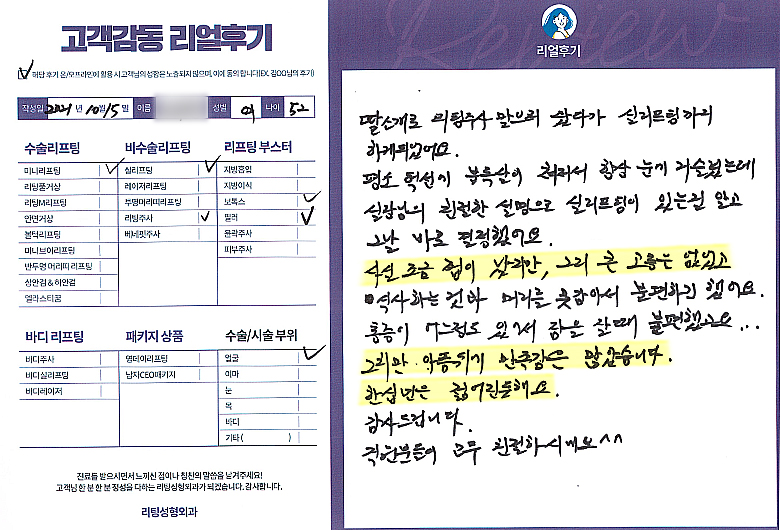 고객감동 리얼후기
해당 후기 온/오프라인에 활용 시 고객님의 성함은 노출되지 않으며, 이에 동의합니다(EX. 김OO님의 후기)
작성일 2021년 10월 15일 이름 성별 여 나이 52
수술리프팅
미니리프팅
리팅풀거상
리팅M리프팅
안면거상
볼턱리프팅
미니브이리프팅
반투명 머리띠 리프팅
상안검 & 하안검
엘라스티꿈
비수술리프팅
실리프팅
레이저리프팅
투명머리띠리프팅
리팅주사
베네핏주사
리프팅 부스터
지방흡입
지방이식
보톡스
필러
윤곽주사
피부주사
바디 리프팅
바디주사
바디실리프팅
바디레이저
패키지 상품
영데이리프팅
남자CEO패키지
수술/시술 부위
얼굴
이마
눈
목
바디
기타 ( )
진료를 받으시면서 느끼신 점이나 칭찬의 말씀을 남겨주세요!
고객님 한 분 한 분 정성을 다하는 리팅성형외과가 되겠습니다. 감사합니다.
리팅성형외과
Review
리얼후기
딸소개로 리팅주사 맞으러 왔다가 실리프팅까지
하게되었어요.
평소 턱선이 불룩살이 쳐져서 항상 눈가 거슬렸는데
실장님의 친절한 설명으로 실리프팅이 있는걸 알고
그날 바로 결정했어요.
사실 조금 겁이 났지만, 그리 큰 고통은 없었고
식사하는 것과 머리를 못감아서 불편하긴 했어요.
통증이 어느정도 있어서 잠을 잘때 불편했고요...
그치만 이뻐지기 만족감은 많았습니다.
한십만은 젊어진듯해요.
감사드립니다.
직원분들이 모두 친절하시네요^^